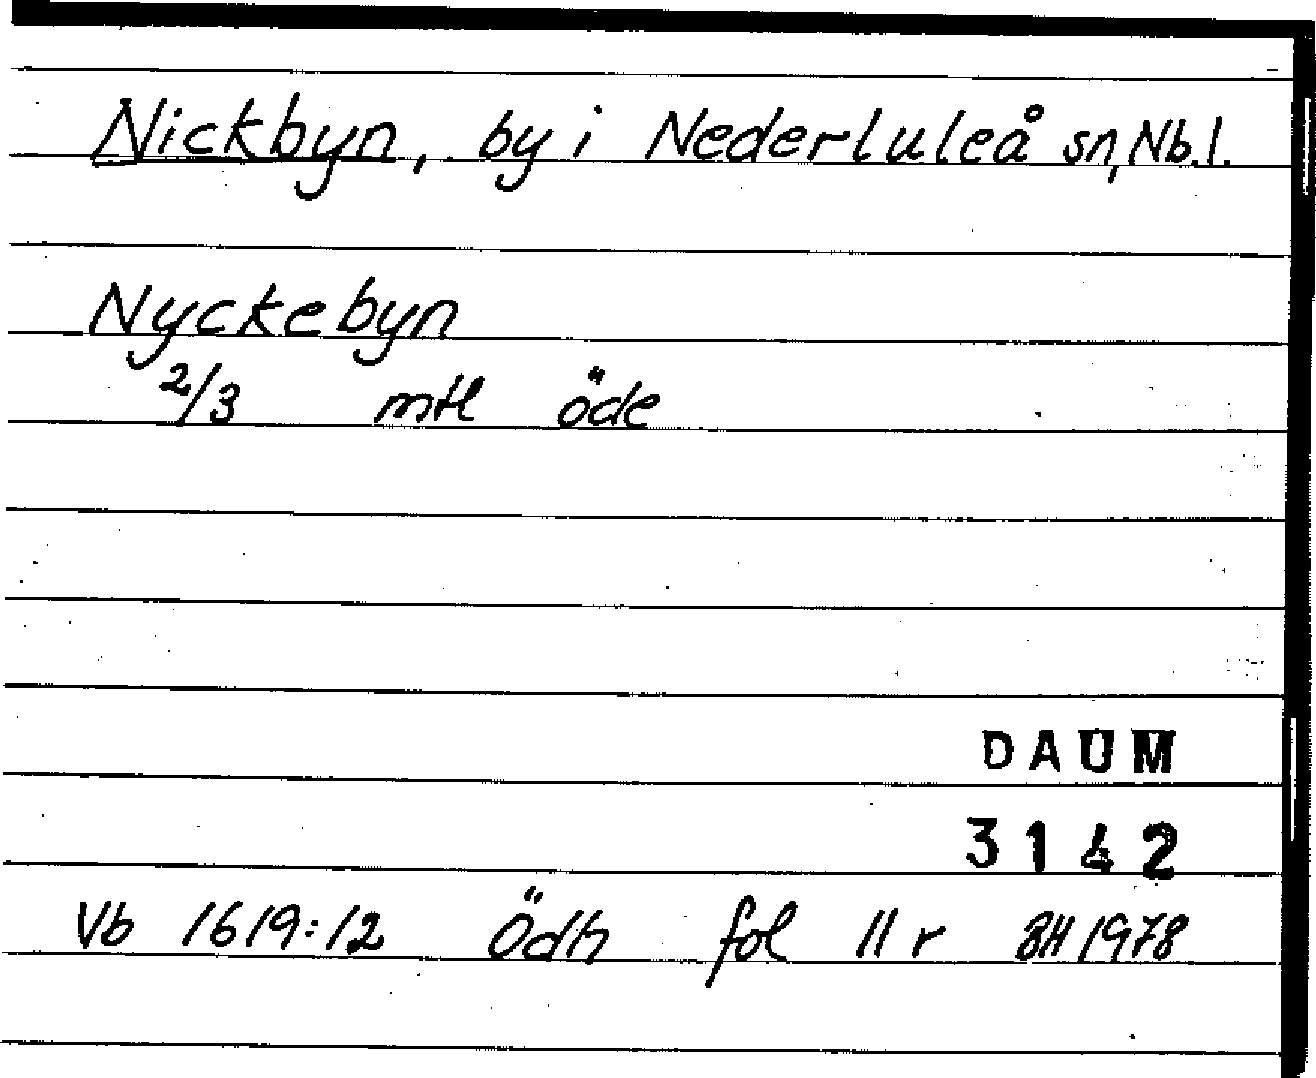 Nickbyn, by i Nederluleå sn, Nb.l.
Nyckebyn
2/3 mtl öde
DAUM
3142
Vb 1619:12 Ödh fol 11 r BH 1978